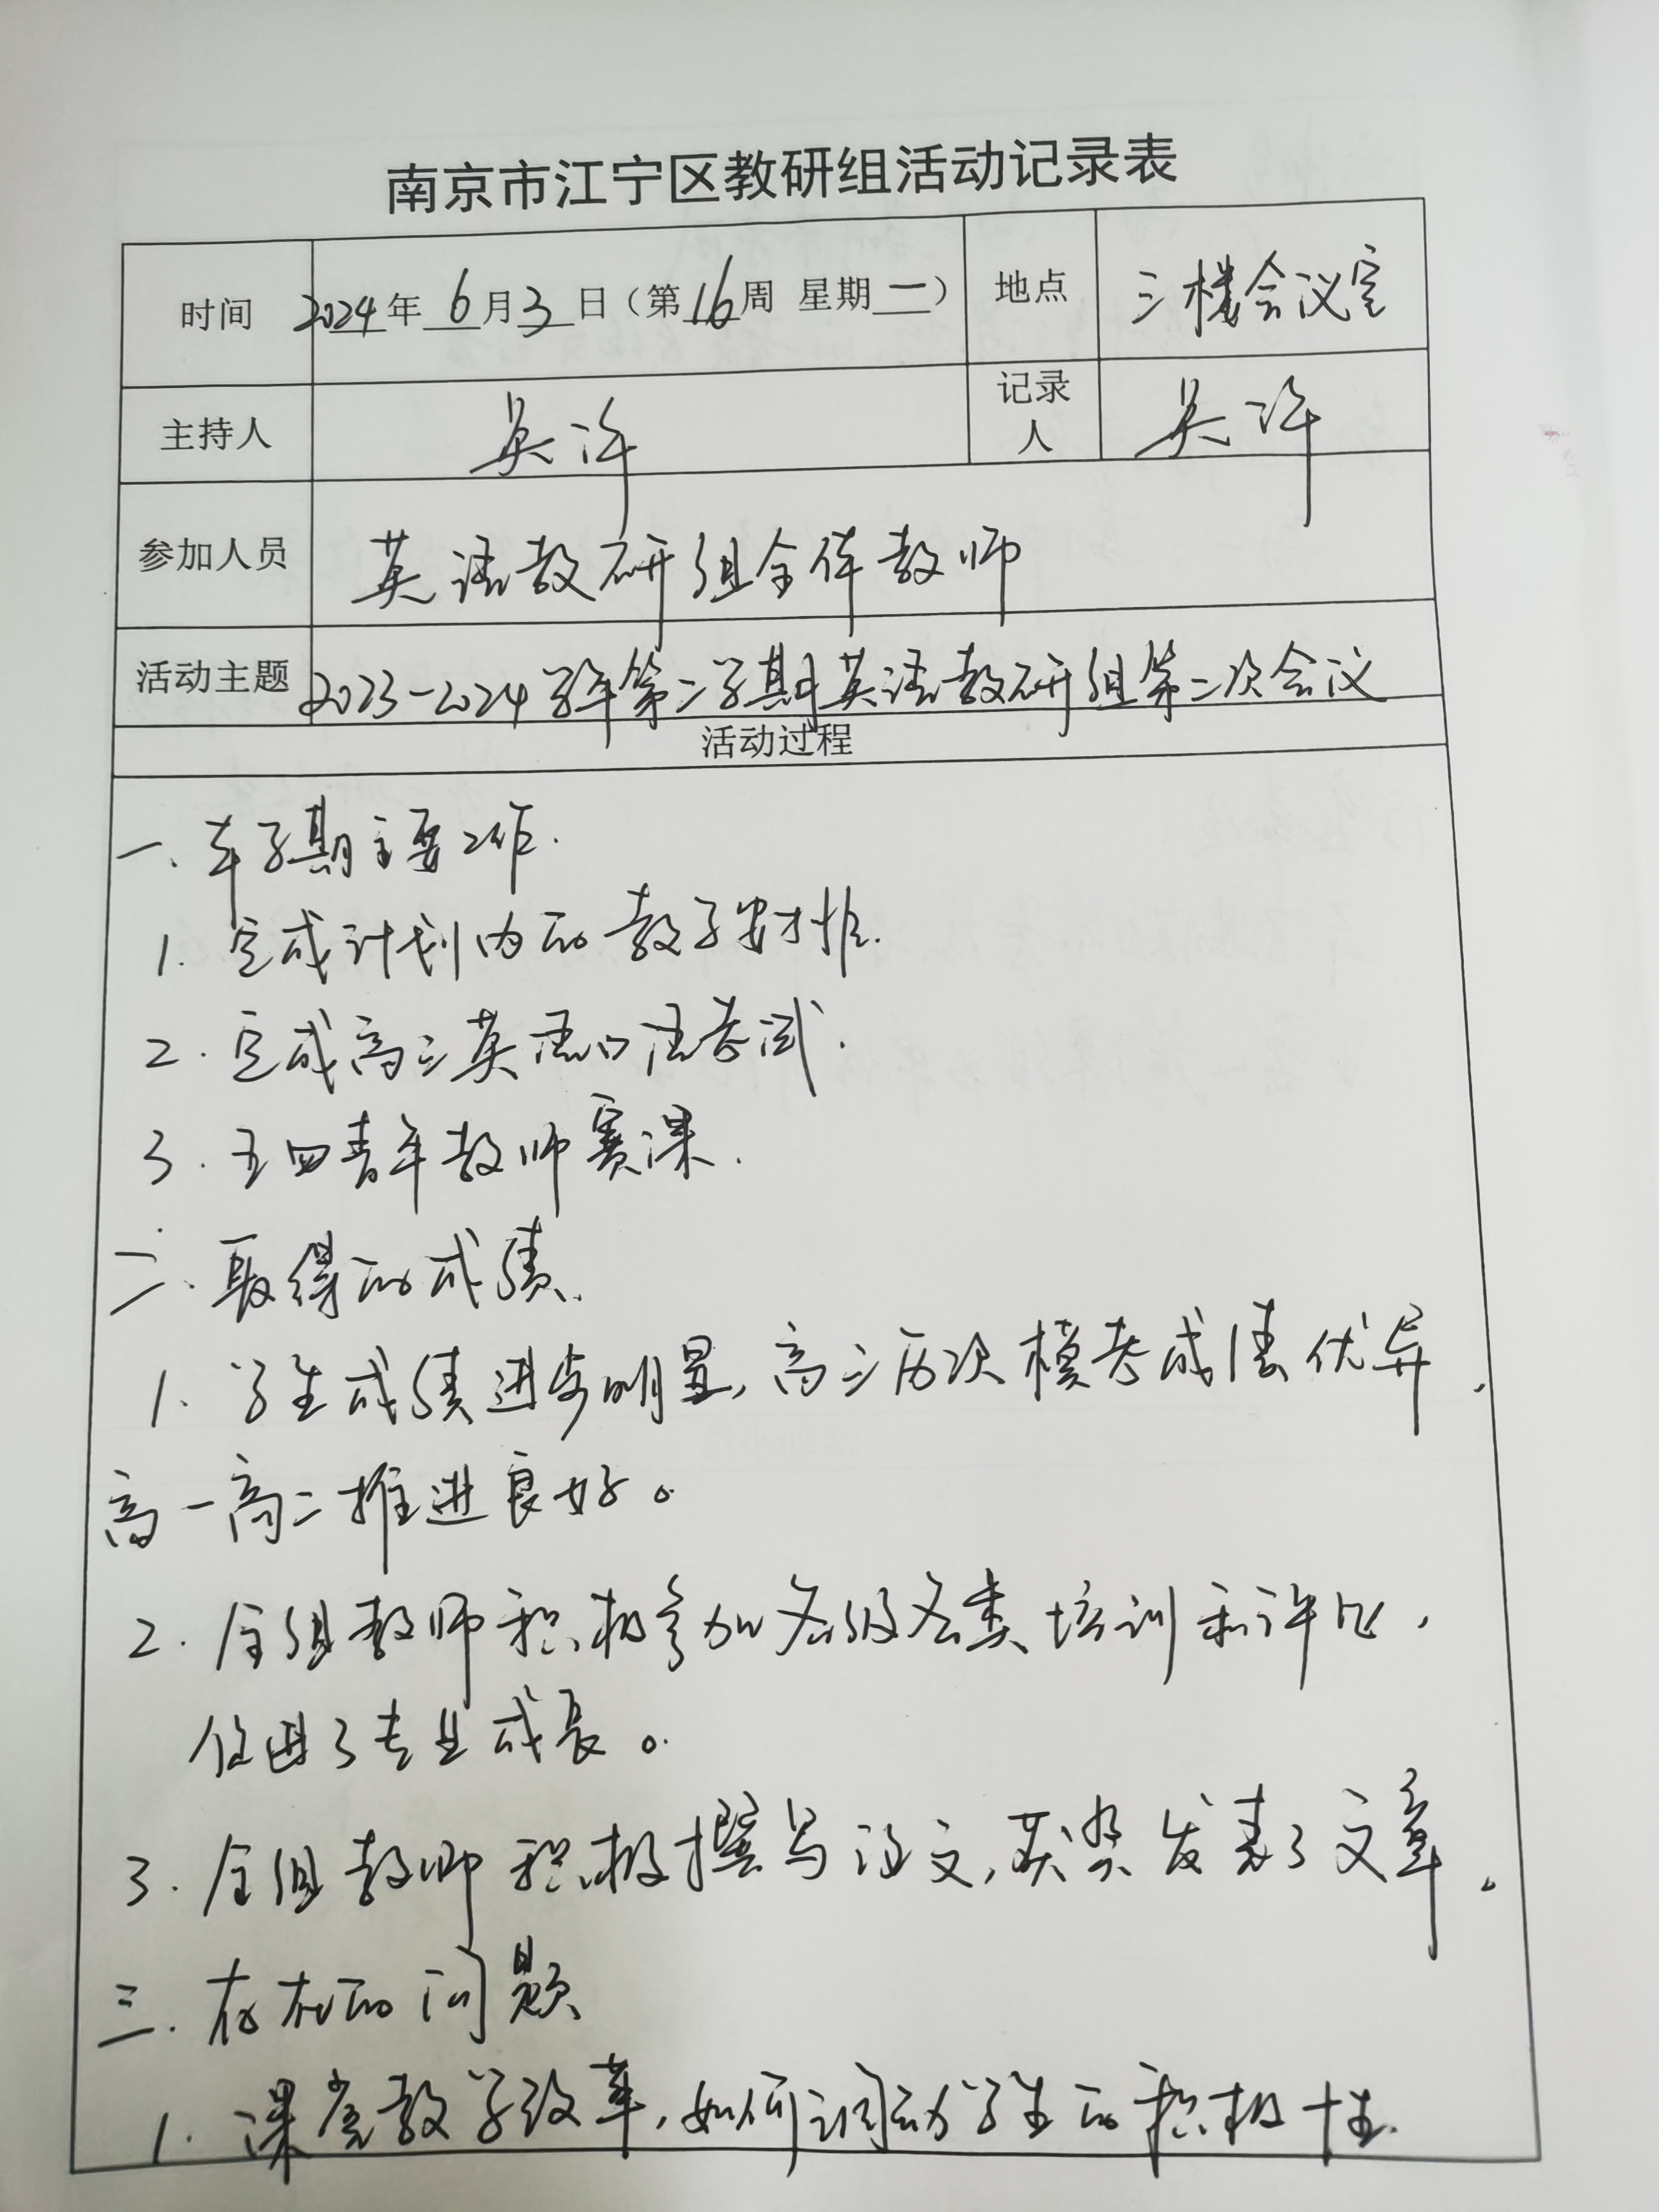 南京市江宁区教研组活动记录表
时间 2024年 6月3日（第16周 星期一） 地点 三楼会议室
主持人 吴许 记录人 吴许
参加人员 英语教研组全体教师
活动主题 2023-2024学年第二学期英语教研组第二次会议
活动过程
一、本学期主要工作.
1. 完成计划内的教学安排.
2. 完成高三英语口语考试.
3. 五四青年教师赛课.
二、取得的成绩.
1. 学生成绩进步明显,高三历次模考成绩优异,
高一高二推进良好。
2. 全组教师积极参加各级各类培训和评比,
促进了专业成长。
3. 全组教师积极撰写论文,获奖发表了文章。
三. 存在的问题
1. 课堂教学改革,如何调动学生的积极性.